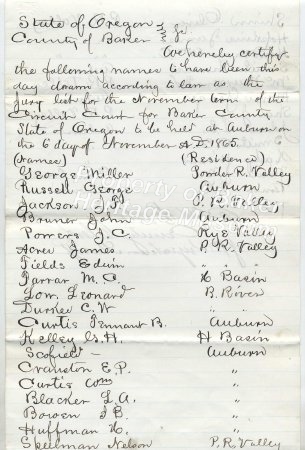 State of Oregon
County of Baker } ss
We hereby certify
the following names to have been this
day drawn according to law as the
jury list for the November term of the
Circuit Court for Baker County
State of Oregon to be held at Auburn on
the 6 day of November A.D. 1865.
(Names) (Residence)
George Miller Powder R. Valley
Russell George Auburn
Jackson P. R. Valley
Bruner John Auburn
Powers J. C. Rye Valley
Acres James P. R. Valley
Fields Edwin "
Farrar M. C. H Basin
Leonard B. River
Durkee C. W "
Curtis Tennant B. Auburn
Kelley G. H. H Basin
Scofield — Auburn
Cranston E. P. "
Curtis Wm "
Blacker L. A. "
Bowen J B. "
Huffman H. "
Speelman Nelson P. R. Valley
Property of
Heritage